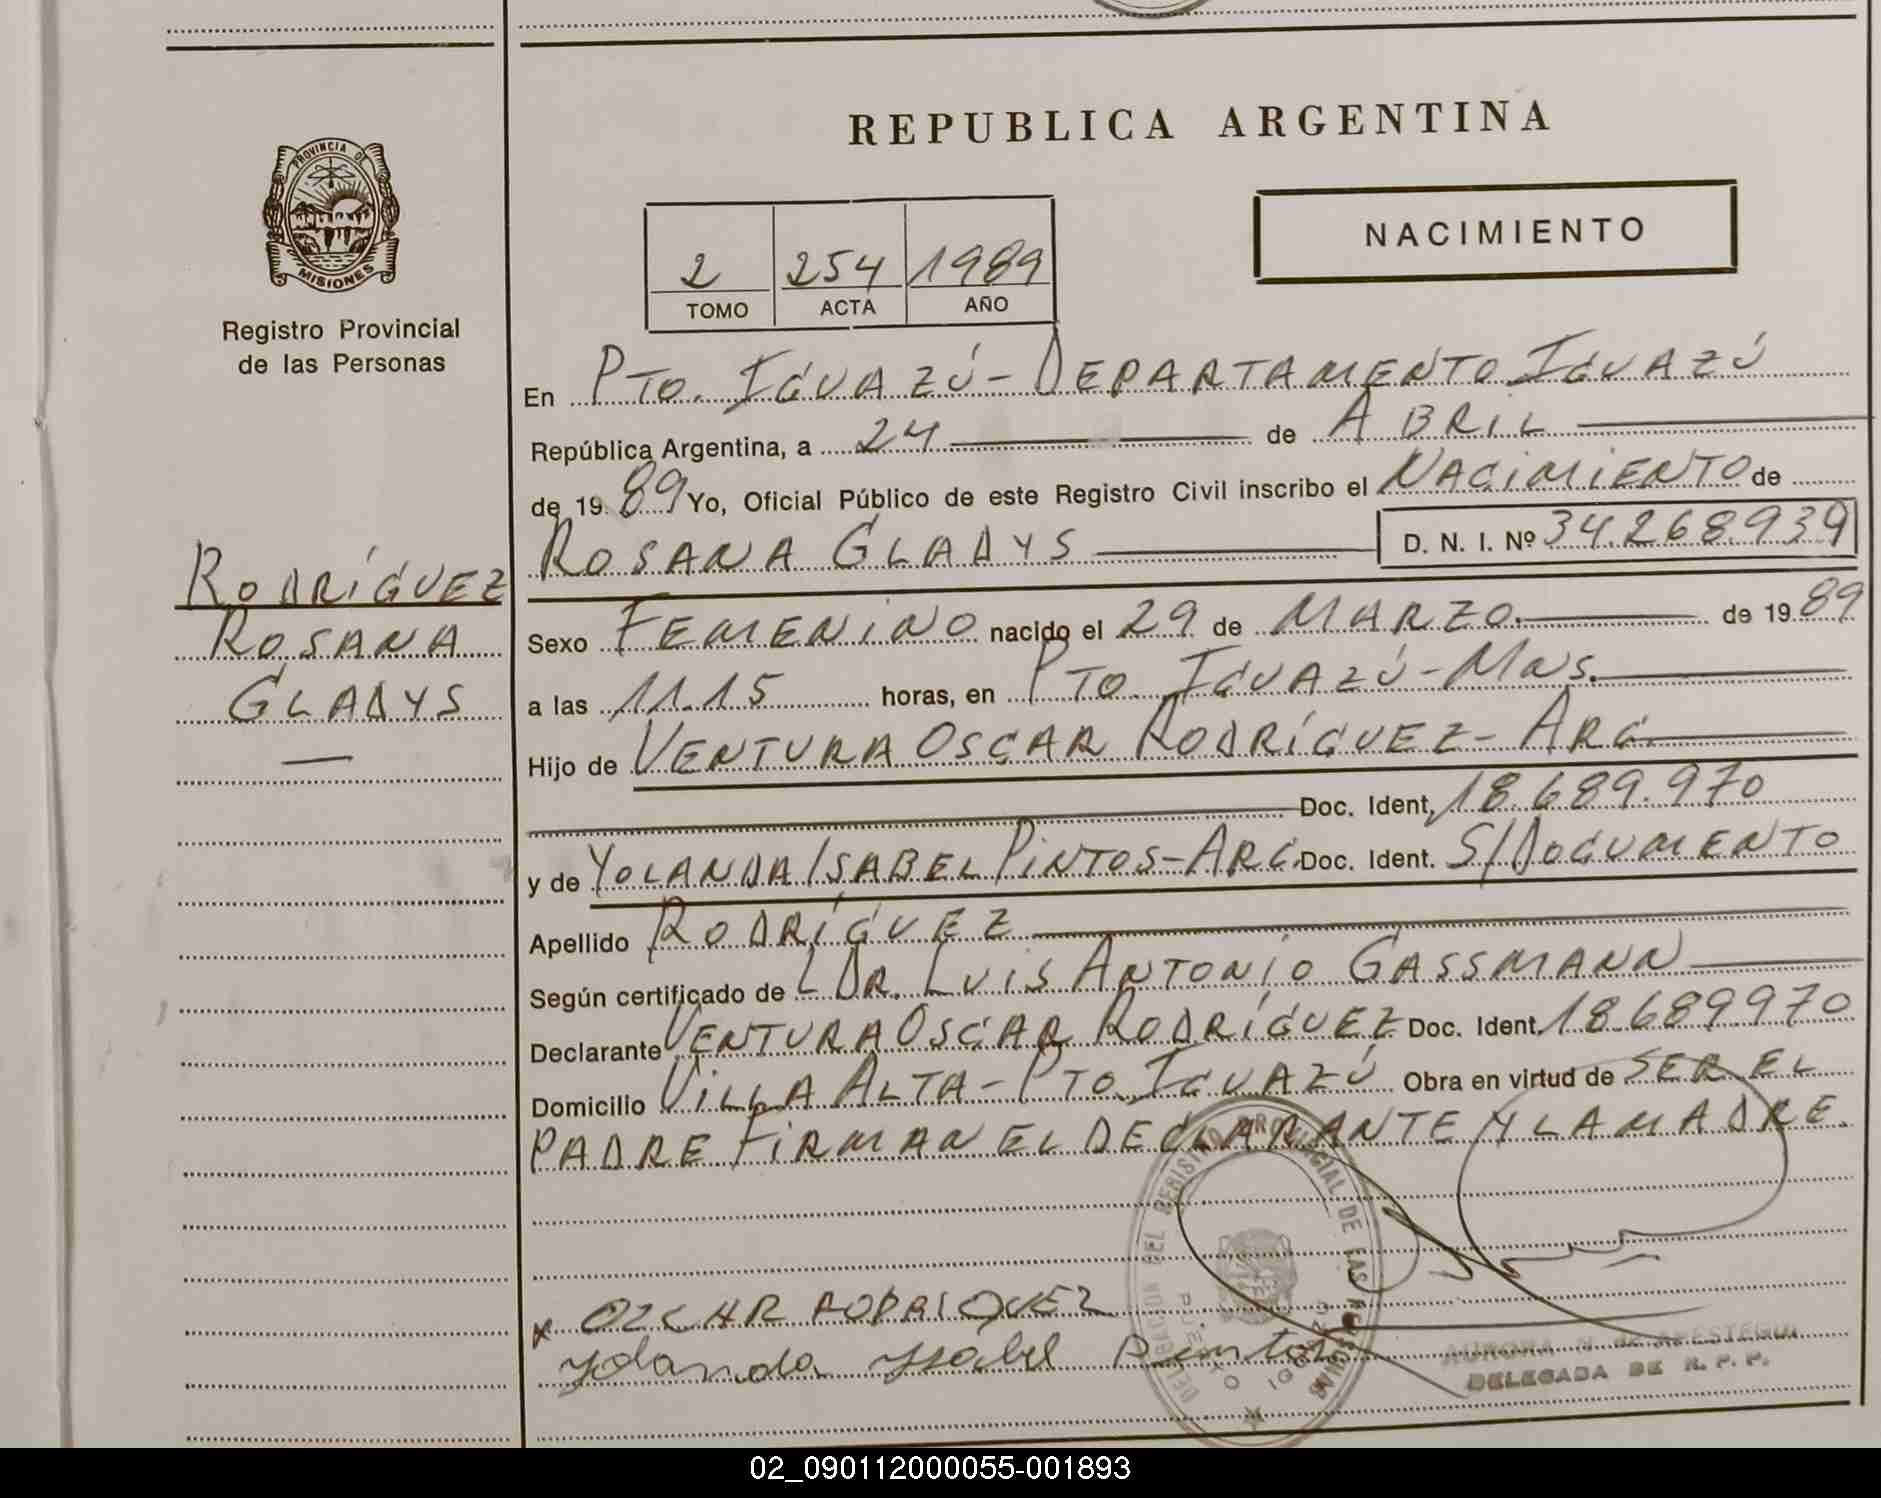 REPUBLICA ARGENTINA
PROVINCIA DE
MISIONES
Registro Provincial
de las Personas
NACIMIENTO
2 254 1989
TOMO ACTA AÑO
En PTO. IGUAZÚ - DEPARTAMENTO IGUAZÚ
República Argentina, a 24 de ABRIL
de 19 89 Yo, Oficial Público de este Registro Civil inscribo el NACIMIENTO de
ROSANA GLADYS D. N. I. Nº 34.268.939
RODRÍGUEZ
ROSANA
GLADYS
Sexo FEMENINO nacido el 29 de MARZO. de 19 89
a las 11.15 horas, en PTO. IGUAZÚ - MNS.
Hijo de VENTURA OSCAR RODRÍGUEZ - ARG.
Doc. Ident. 18.689.970
y de YOLANDA ISABEL PINTOS - ARG. Doc. Ident. S/DOCUMENTO
Apellido RODRÍGUEZ
Según certificado de L DR. LUIS ANTONIO GASSMANN
Declarante VENTURA OSCAR RODRÍGUEZ Doc. Ident. 18689970
Domicilio VILLA ALTA - PTO. IGUAZÚ Obra en virtud de SER EL
PADRE FIRMAN EL DECLARANTE Y LA MADRE.
DELEGACION DEL REGISTRO PROVINCIAL DE LAS PERSONAS
PUERTO IGUAZU
x OZCAR RODRIQUEZ
Yolanda Ysabel Pintos
AURORA N. DE APESTEGUI
DELEGADA DE R. P. P.
02_090112000055-001893